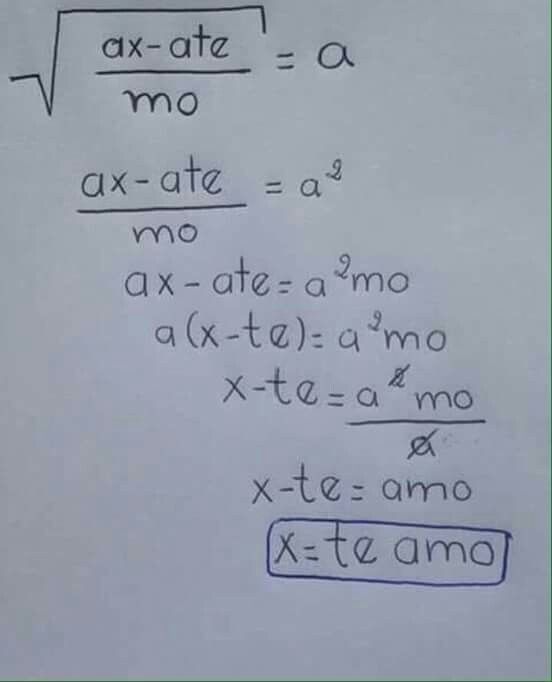 √((ax-ate)/mo) = a
(ax-ate)/mo = a²
ax-ate=a²mo
a(x-te)=a²mo
x-te=a²mo/a
x-te=amo
x=te amo